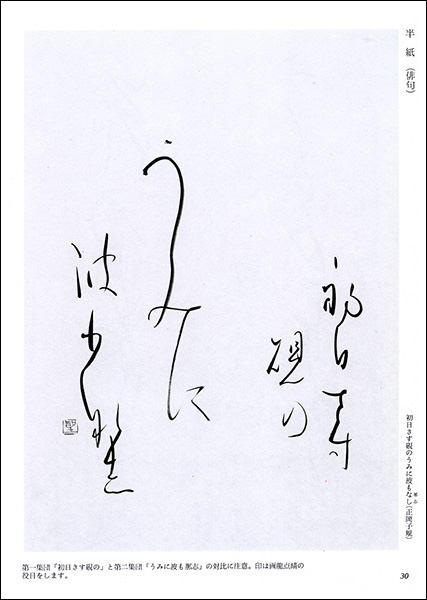 半紙（俳句）
初日さす
硯の
うみに
波も那志
初日さす硯のうみに波もなし（正岡子規）
那志
第一集団「初日さす硯の」と第二集団「うみに波も那志」の対比に注意。印は画龍点睛の
役目をします。
30